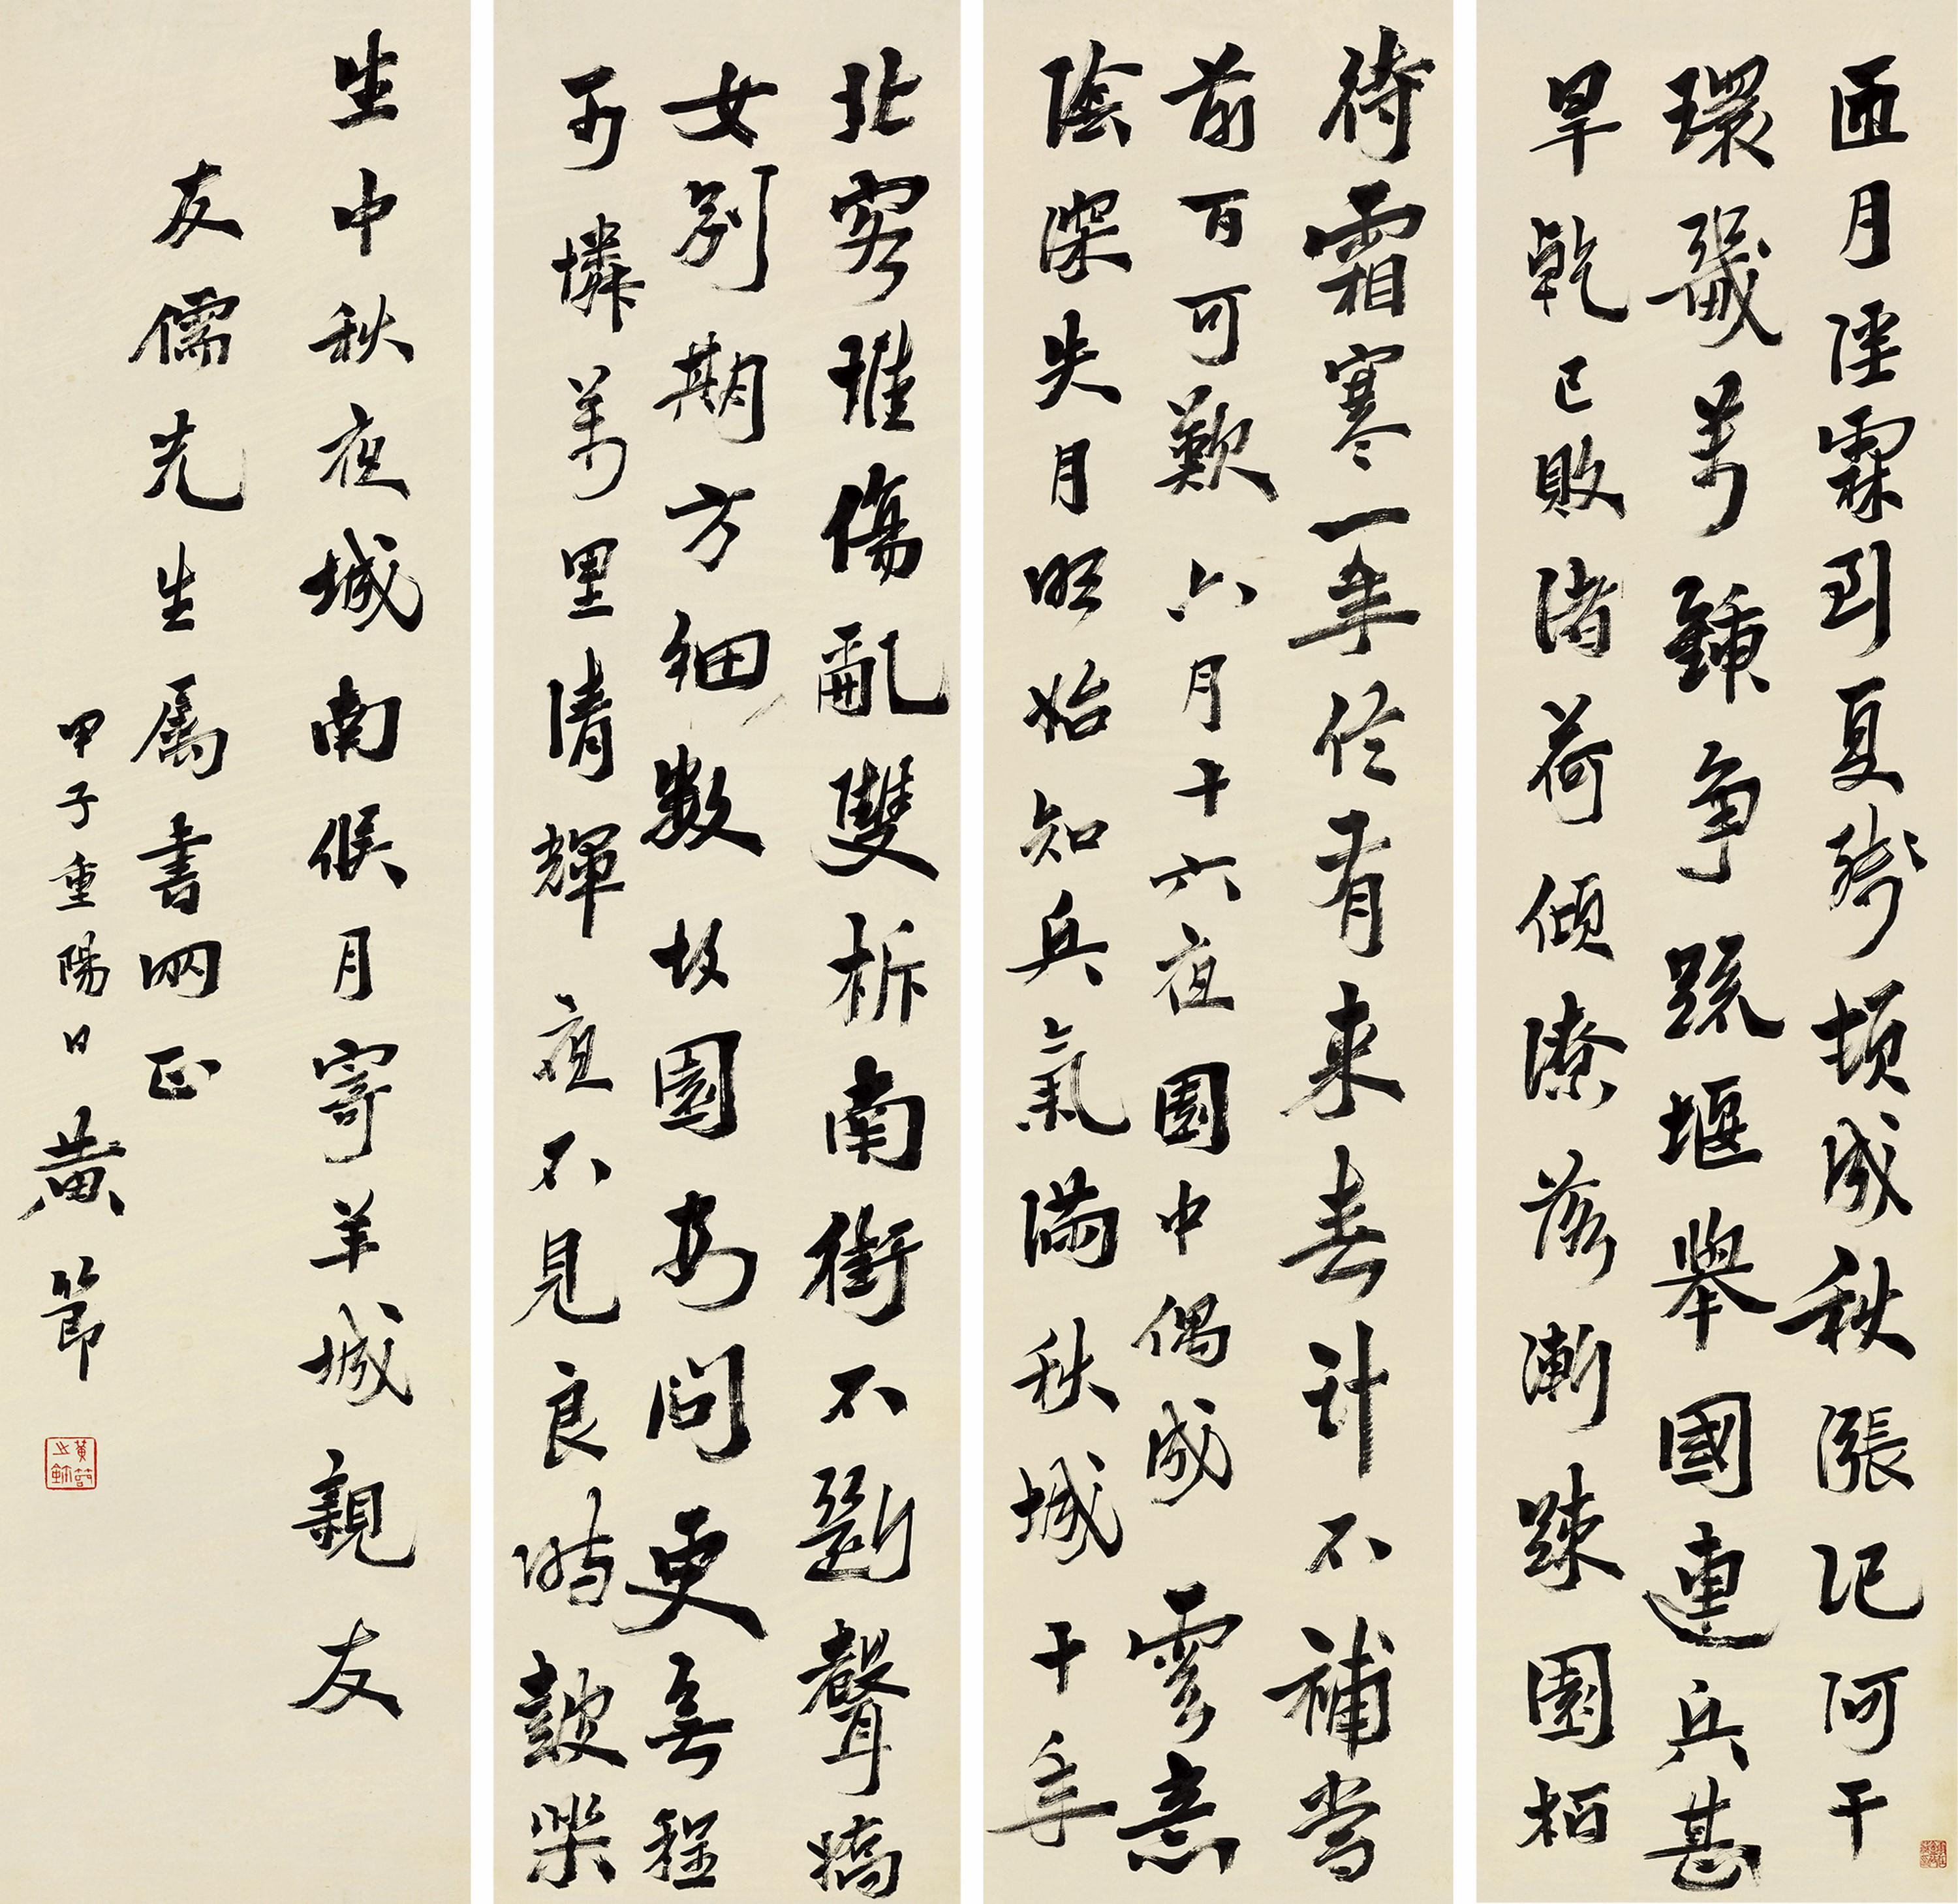 匝月淫霖到夏殘頃成秋漲記阿干
環畿萬鍾爭疏堰舉國連兵甚
旱乾已敗渚荷傾潦落漸疎園柏
待霜寒一年佟肴來春計不補當
前百可歎六月十六夜園中偶成雲意
陰深失月明始知兵氣滿秋城十年
北客唯傷亂雙柝南街不斷聲嬌
女別期方細數故園安問更無程
可憐萬里清輝夜不見良時鼓樂
生中秋夜城南候月寄羊城親友
友儒先生屬書网正
甲子重陽日黃節
黃節之鉥